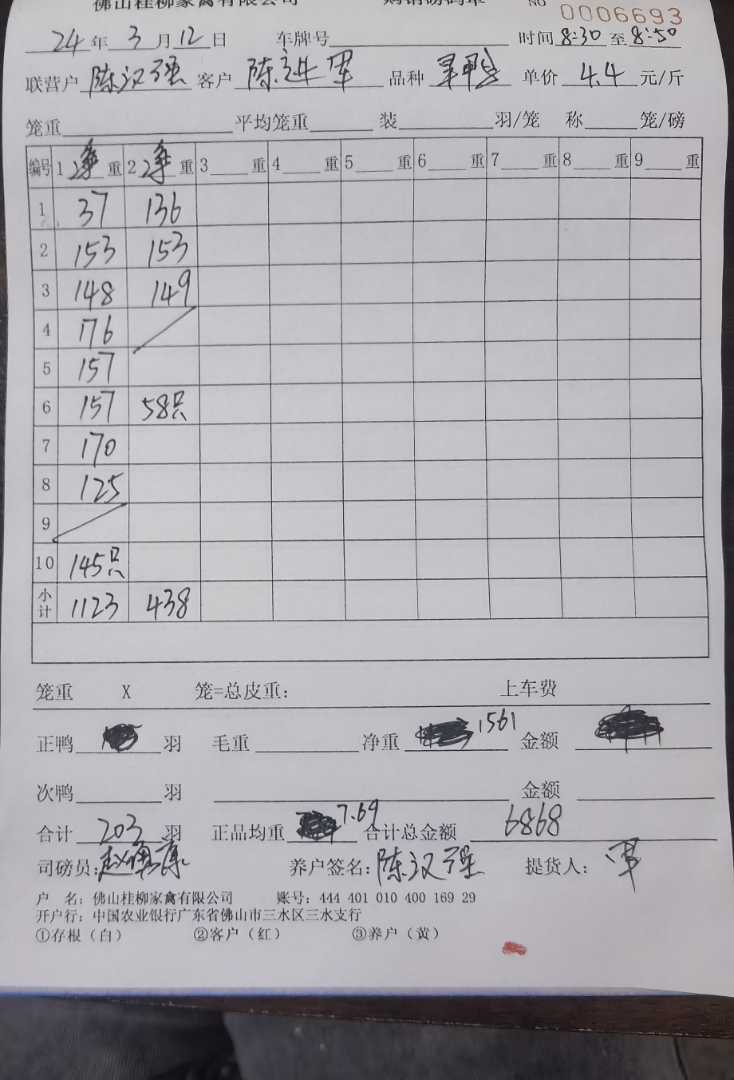 佛山桂柳家禽有限公司 购销磅码单 NO 0006693
24年3月12日 车牌号 时间8:30至8:50
联营户 陈汉强 客户 陈 军 品种 单价 4.4 元/斤
笼重 平均笼重 装 羽/笼 称 笼/磅
编号 1净重 2净重 3 重 4 重 5 重 6 重 7 重 8 重 9 重
1 37 136
2 153 153
3 148 149
4 176
5 157
6 157 58只
7 170
8 125
9
10 145只
小计 1123 438
笼重 X 笼=总皮重: 上车费
正鸭 羽 毛重 净重 1561 金额
次鸭 羽 金额
合计 203 羽 正品均重 7.69 合计总金额 6868
司磅员: 养户签名:陈汉强 提货人: 军
户 名: 佛山桂柳家禽有限公司 账号: 444 401 010 400 169 29
开户行: 中国农业银行广东省佛山市三水区三水支行
①存根(白) ②客户(红) ③养户(黄)